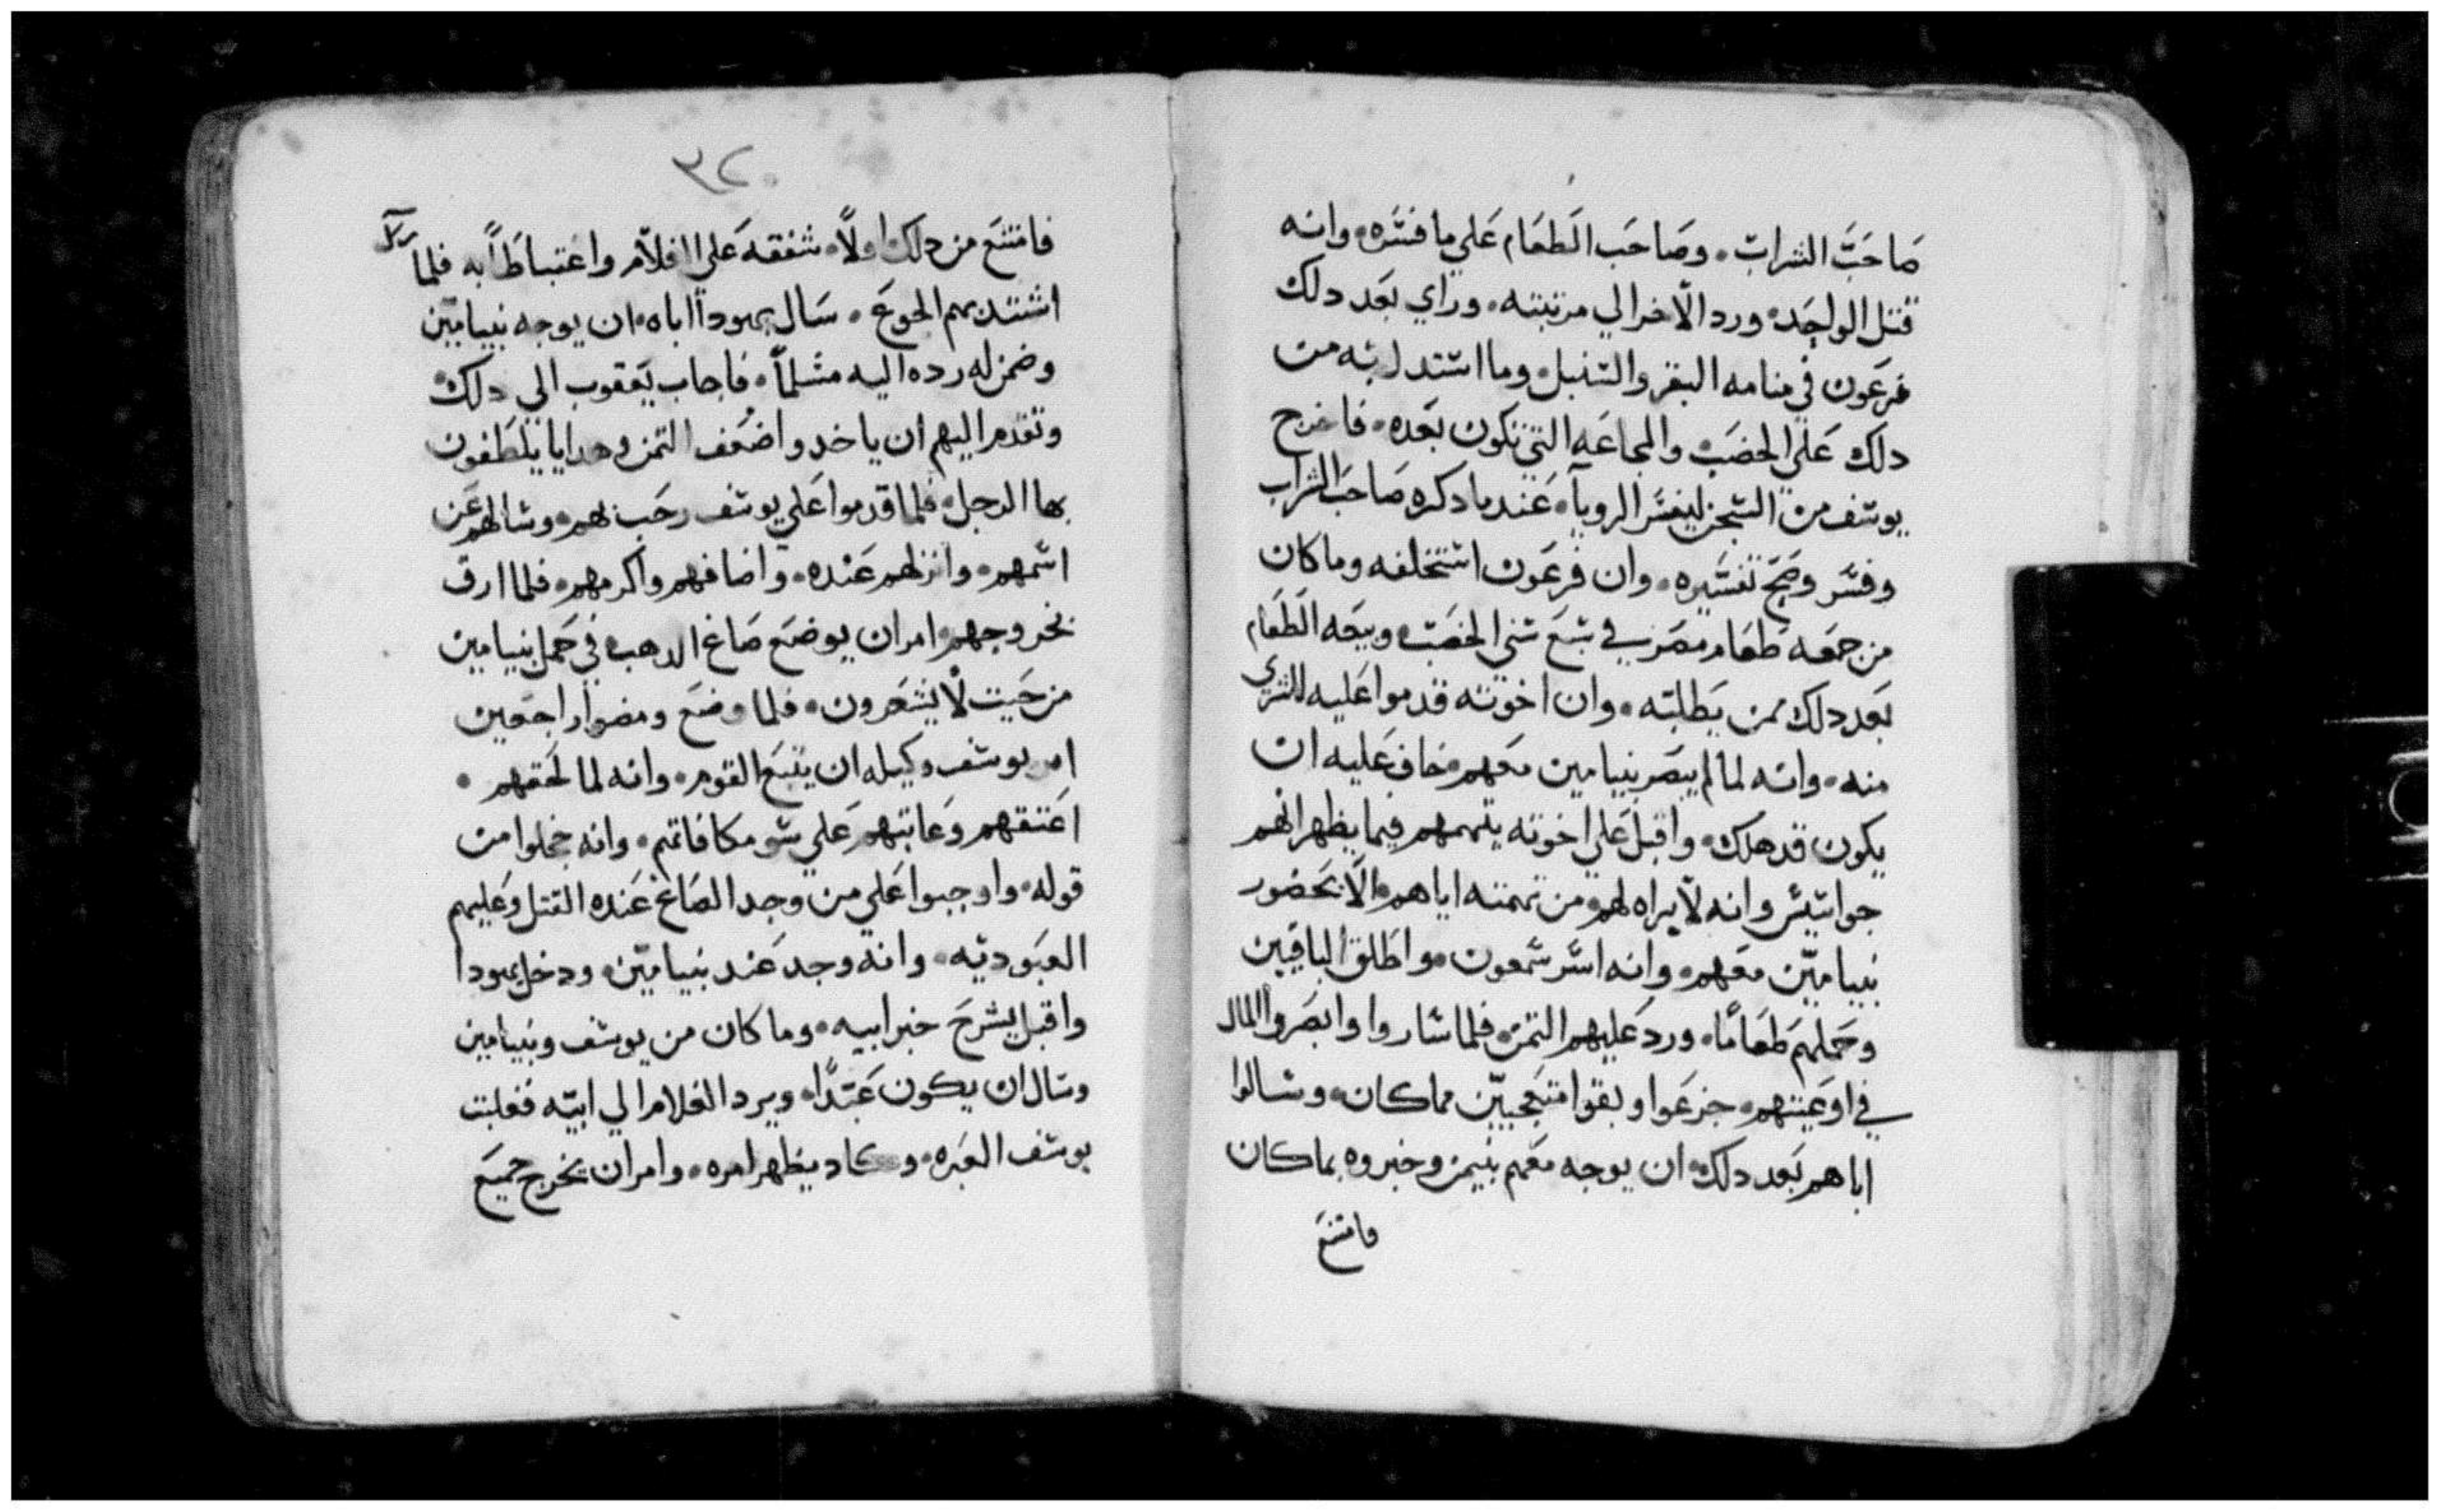 صاحب الشراب. وصاحب الطعام علي ما فسره. وانه
قتل الواحد. ورد الاخر الي مرتبته. وراي بعد دلك
فرعون في منامه البقر والسنبل. وما استدل به من
دلك علي الخصب والمجاعه التي تكون بعده. فاخرج
يوسف من السجن ليفسر الرويا. عند ما دكره صاحب الشراب
وفسر وصح تفسيره. وان فرعون استخلفه وما كان
من جمعه طعام مصر في سبع سني الخصب وبيعه الطعام
بعد دلك ممن يطلبه. وان اخوته قدموا عليه للشري
منه. وانه لما لم يبصر بنيامين معهم. خاف عليه ان
يكون قد هلك. واقبل علي اخوته يتهمهم فيما يظهر انهم
جواسيس وانه لا يراه لهم من تهمته اياهم الا بحضور
بنيامين معهم. وانه اسر سمعون. واطلق الباقين
وحملهم طعاما. ورد عليهم التمن. فلما ساروا وابصروا المال
في اوعيتهم. جزعوا وبقوا متعجبين مما كان. وسالوا
اباهم بعد دلك ان يوجه معهم بنيمن وخبروه بما كان
فامتنع
٣٢٠
فامتنع من دلك اولا. شفقه علي الغلام واغتباطا به فلما
اشتد بهم الجوع. سال يهودا اباه. ان يوجه بنيامين
وضمن له رده اليه مسلما. فاجاب يعقوب الي دلك
وتقدم اليهم ان ياخدوا ضعف التمن وهدايا يلطفون
بها الرجل. فلما قدموا علي يوسف رحب بهم. وسالهم عن
اسمهم. وانزلهم عنده. واضافهم واكرمهم. فلما ارف
نخروجهم. امر ان يوضع صاع الدهب في حمل بنيامين
من حيت لا يشعرون. فلما وضع ومضوا راجعين
امر يوسف وكيله ان يتبع القوم. وانه لما لحقهم.
اعتقهم وعاتبهم علي سو مكافاتهم. وانه خجلوا من
قوله. واوجبوا علي من وجد الصاع عنده القتل وعليهم
العبوديه. وانه وجد عند بنيامين. ودخل يهودا
واقبل يشرح خبر ابيه. وما كان من يوسف وبنيامين
وسال ان يكون عبدا. ويرد الغلام الي ابيه فغلبت
يوسف العبره. وكاد يظهر امره. وامر ان يخرج جميع